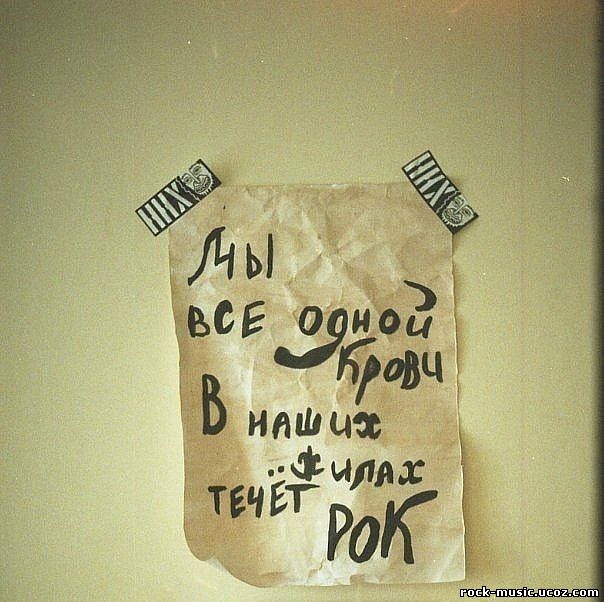 НИХ
НИХ
Мы
все одной
крови
В наших
жилах
течёт
РОК
rock-music.ucoz.com